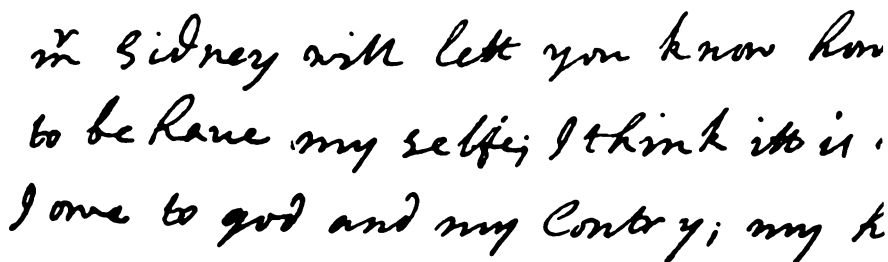 mr Sidney will lett you know how
to be haue my selfe; I think itt is
I owe to god and my Contry; my k